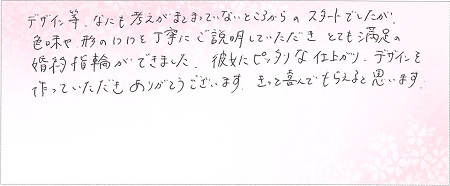 デザイン等、なにも考えがまとまっていないところからの スタートでしたが、
色味や 形の1つ1つを 丁寧に ご説明していただき とても 満足の
婚約指輪ができました。彼女にピッタリな 仕上がり、デザインを
作っていただき ありがとうございます。きっと喜んでもらえると思います。